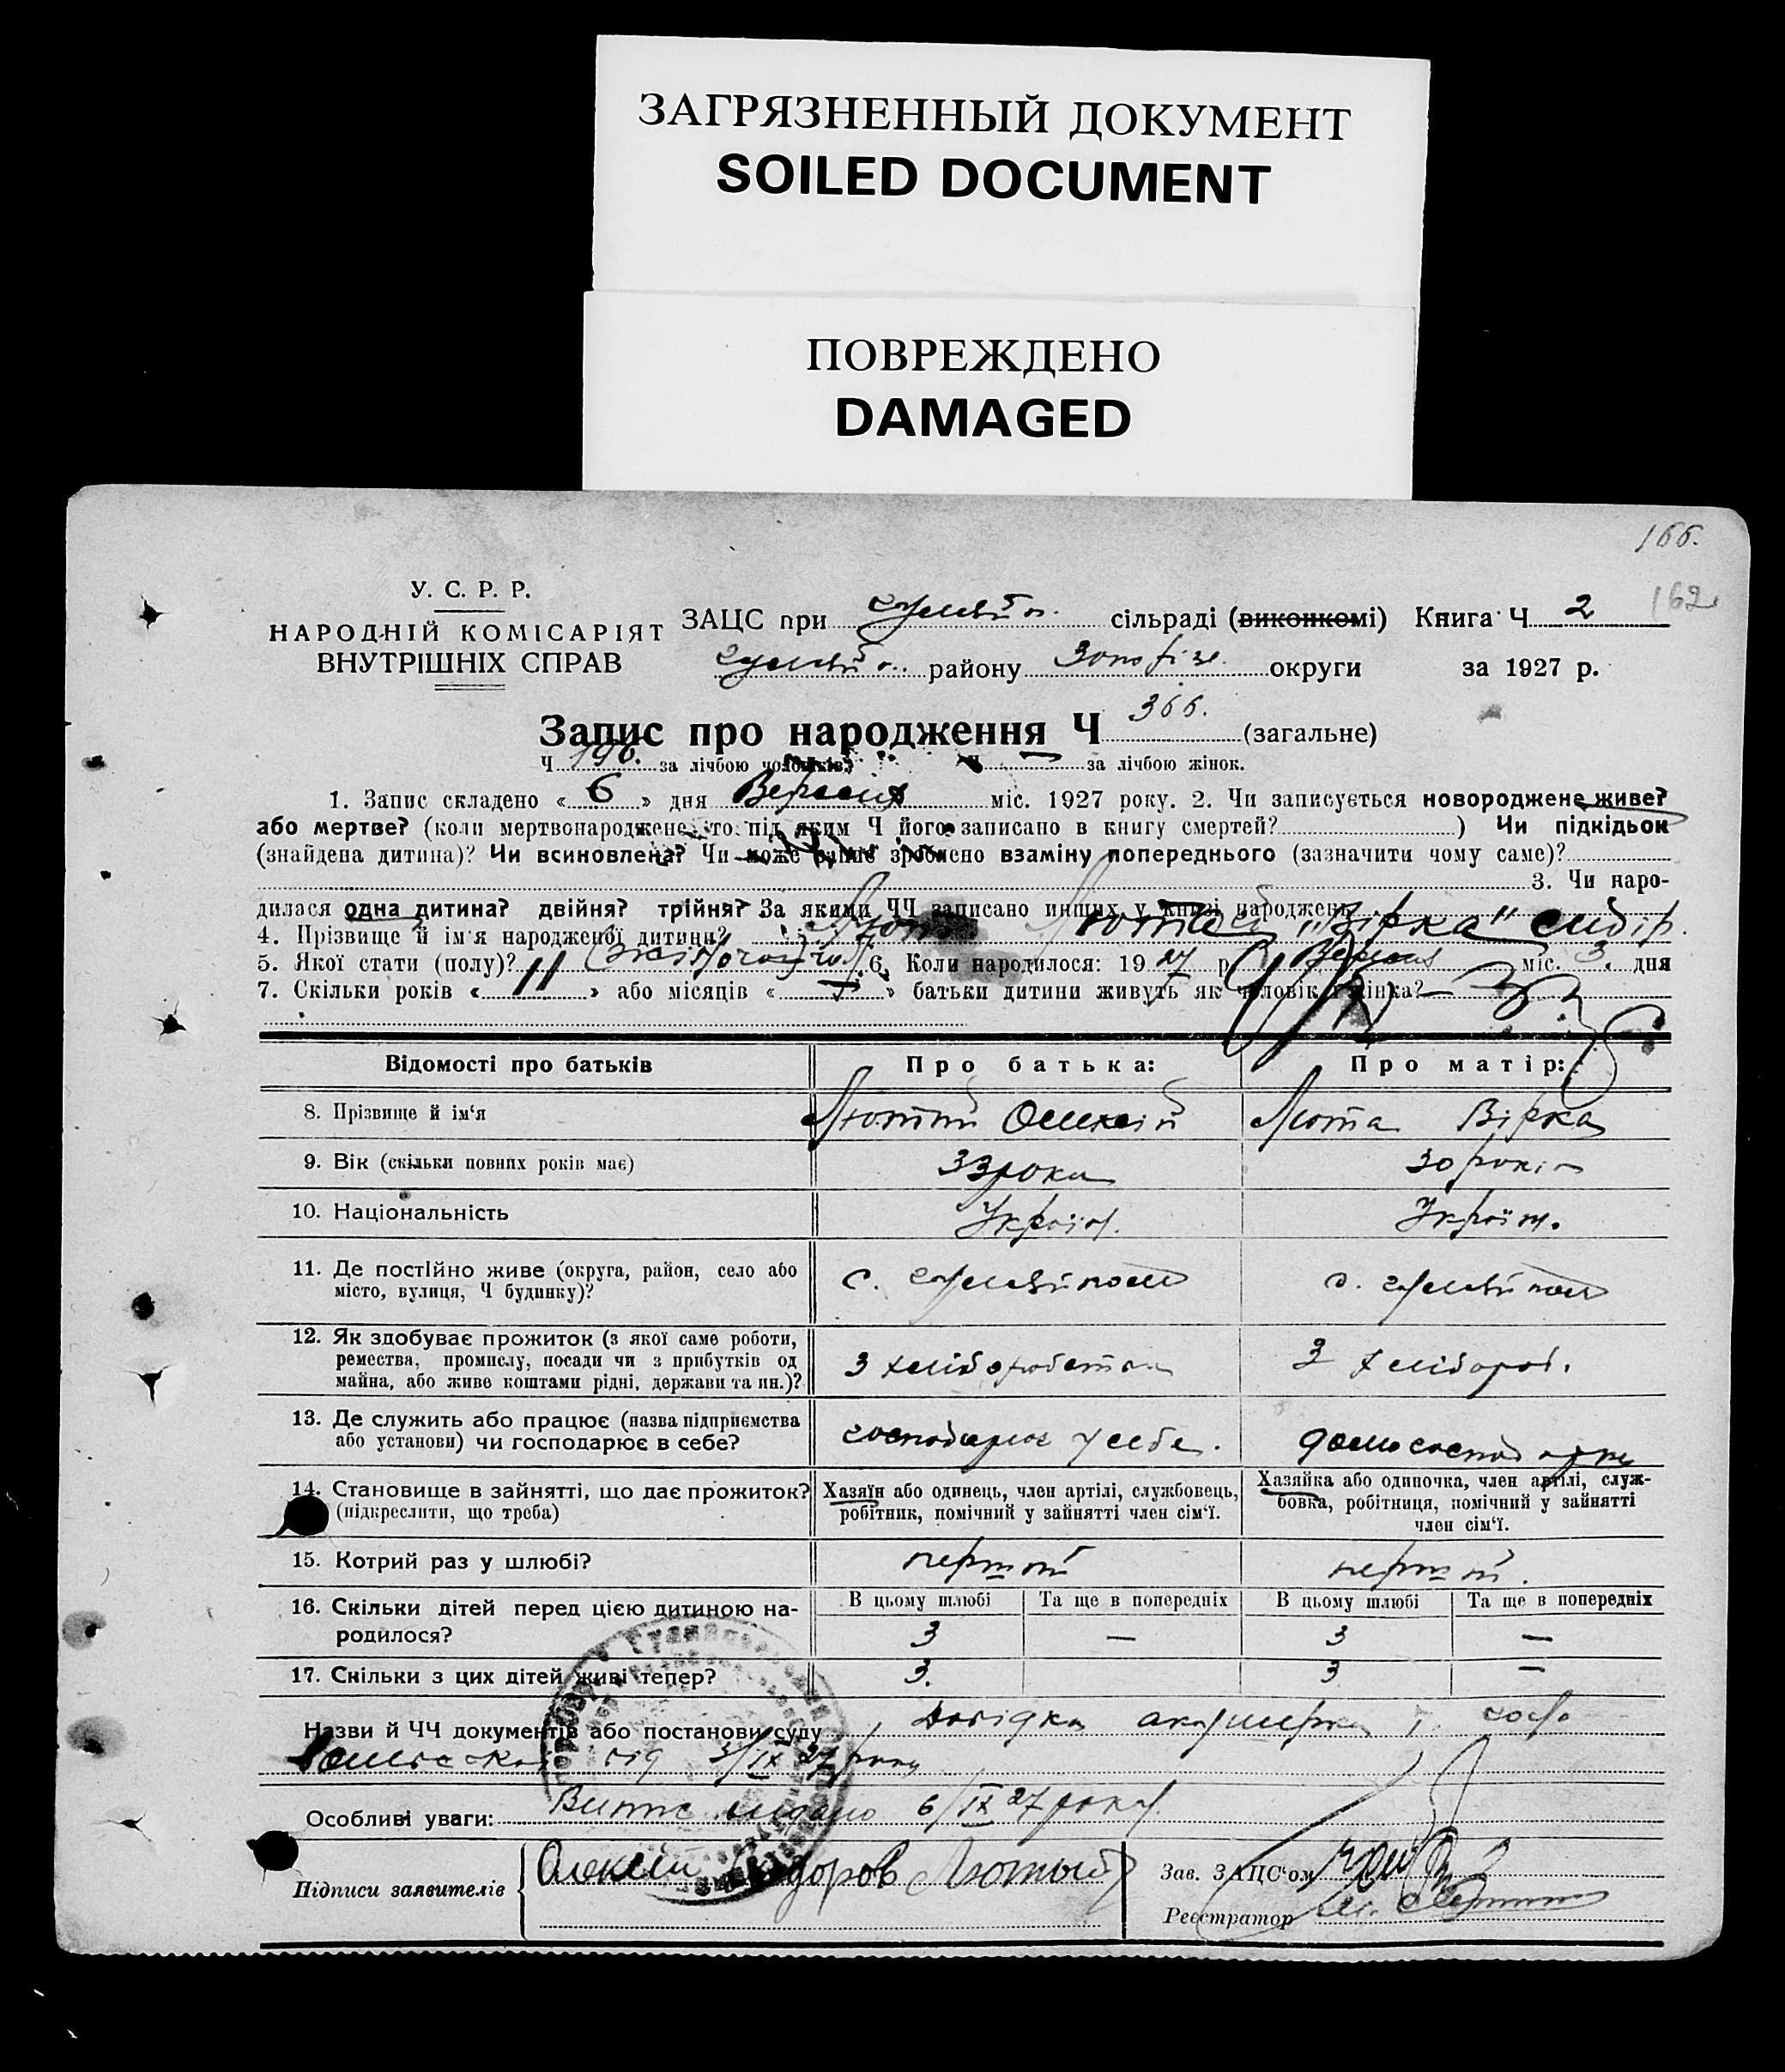 ЗАГРЯЗНЕННЫЙ ДОКУМЕНТ
SOILED DOCUMENT
ПОВРЕЖДЕНО
DAMAGED
166.
162
У. С. Р. Р.
НАРОДНІЙ КОМІСАРІЯТ
ВНУТРІШНІХ СПРАВ
ЗАЦС при сільраді (виконкомі) Книга Ч 2
району округи за 1927 р.
Запис про народження Ч 366. (загальне)
Ч 196. за лічбою чоловіків; Ч — за лічбою жінок.
1. Запис складено « 6 » дня Вересня міс. 1927 року. 2. Чи записується новороджене живе?
або мертве? (коли мертвонароджене, то під яким Ч його записано в книгу смертей? ) Чи підкідьок
(знайдена дитина)? Чи всиновлена? Чи може запис зроблено взаміну попереднього (зазначити чому саме)?
3. Чи наро-
дилася одна дитина? двійня? трійня? За якими ЧЧ записано инших у книзі народжень
4. Прізвище й ім'я народженої дитини?
5. Якої стати (полу)? 6. Коли народилося: 19 27 р. Вересня міс. 3 дня
7. Скільки років « 11 » або місяців « » батьки дитини живуть як чоловік і жінка?
Відомості про батьків Про батька: Про матір:
8. Прізвище й ім'я Лютий Олексій Люта Вірка
9. Вік (скільки повних років має) 33 роки 30 років
10. Національність Україн. Україн.
11. Де постійно живе (округа, район, село або
місто, вулиця, Ч будинку)? с. с.
12. Як здобуває прожиток (з якої саме роботи,
ремества, промислу, посади чи з прибутків од
майна, або живе коштами рідні, держави та ин.)? З хліборобства З хлібороб.
13. Де служить або працює (назва підприємства
або установи) чи господарює в себе? господарює у себе. домогосподарка
14. Становище в зайнятті, що дає прожиток?
(підкреслити, що треба)
Хазяїн або одинець, член артілі, службовець,
робітник, помічний у зайнятті член сім'ї.
Хазяйка або одиночка, член артілі, служ-
бовка, робітниця, помічний у зайнятті
член сім'ї.
15. Котрий раз у шлюбі? перший перший.
16. Скільки дітей перед цією дитиною на-
родилося?
В цьому шлюбі Та ще в попередніх В цьому шлюбі Та ще в попередніх
3 — 3 —
17. Скільки з цих дітей живі тепер? 3. 3 —
Назви й ЧЧ документів або постанови суду Довідка акушерки
від 3/IX 27 року
Особливі уваги: Витяг видано 6/IX 27 року.
Підписи заявителів Олексій Лютый
Зав. ЗАЦС'ом
Реєстратор